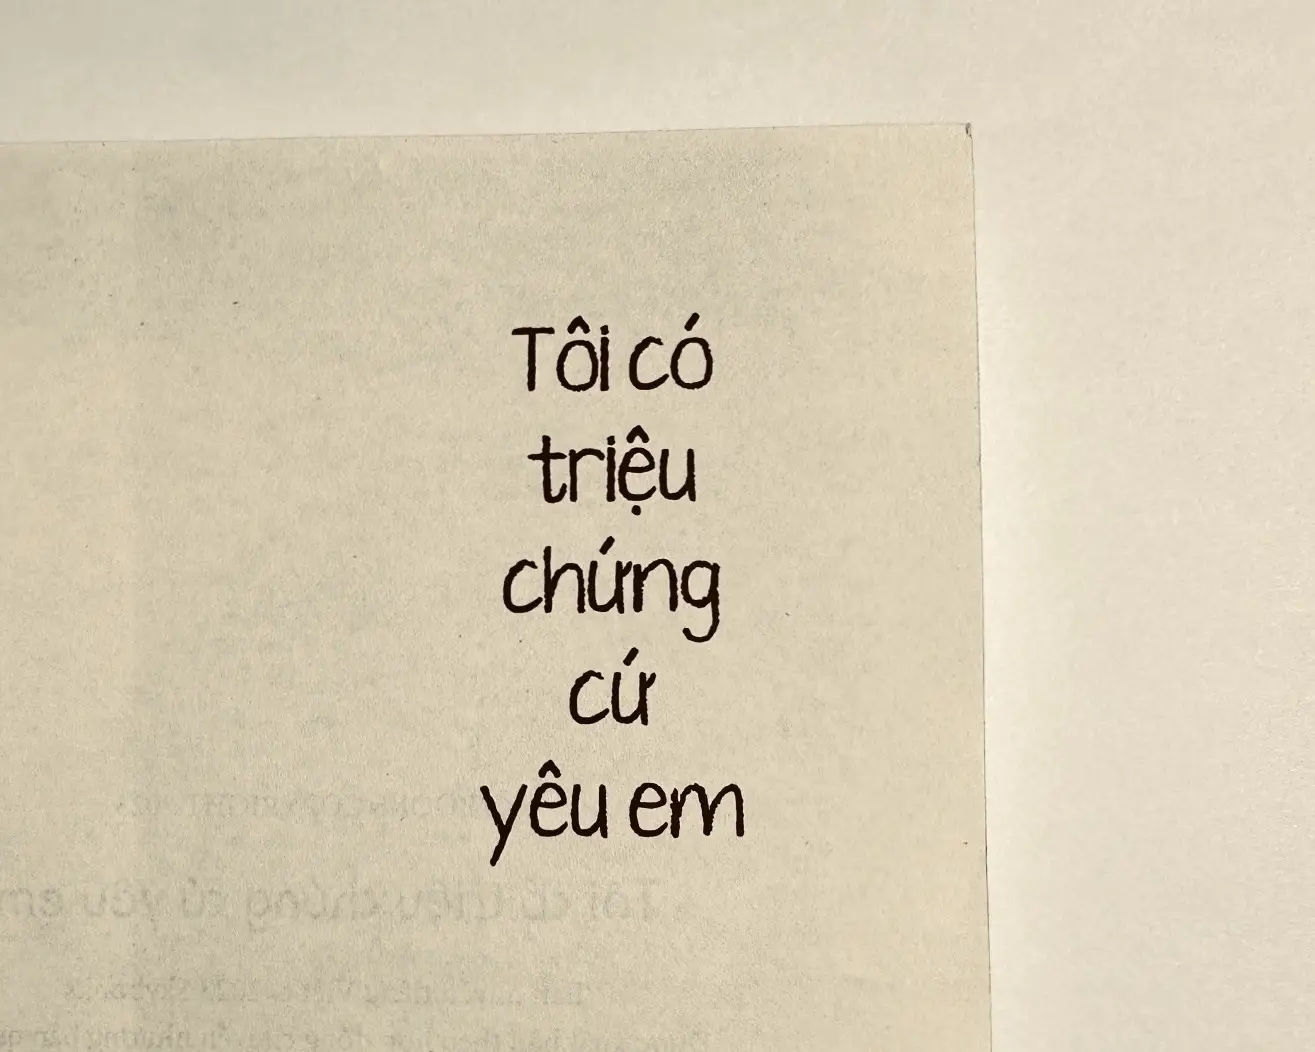 Tôi có
triệu
chứng
cứ
yêu em